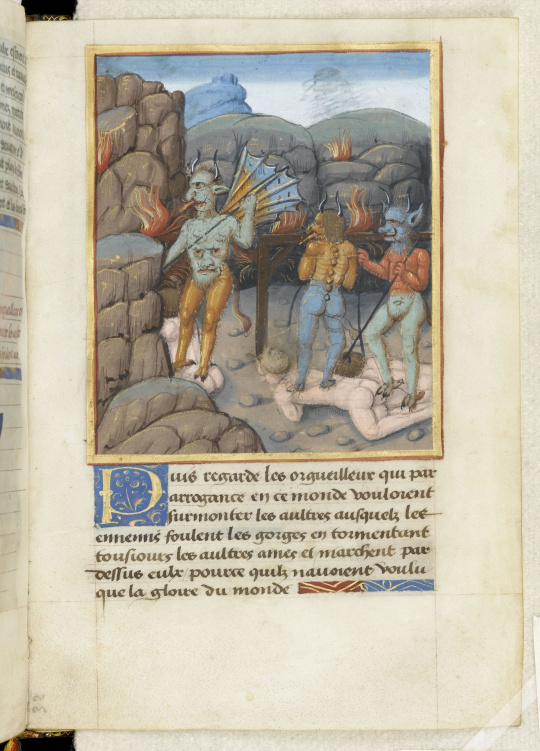 Puis regarde les orgueilleux qui par
arrogance en ce monde vouloient
surmonter les aultres ausquelz les
ennemis foulent les gorges en tormentant
tousiours les aultres ames et marchent par
dessus eulx pource quilz nauoient voulu
que la gloire du monde
32